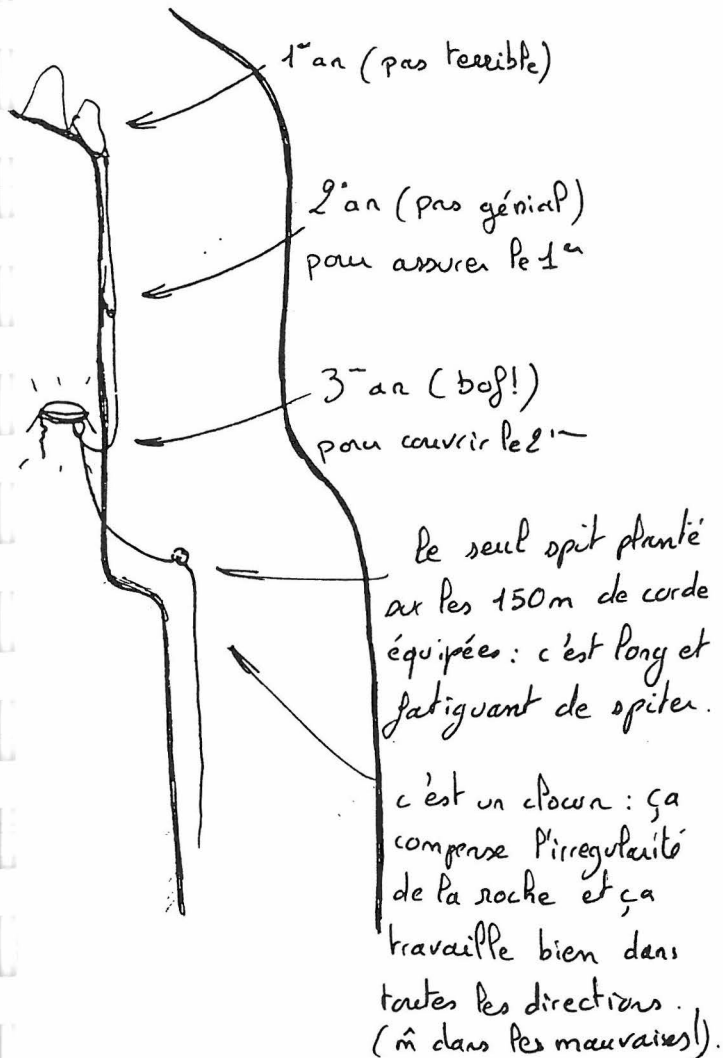 1er an (pas terrible)
2e an (pas génial)
pour assurer le 1er
3e an (bof!)
pour couvrir le 2e
le seul spit planté
sur les 150m de corde
équipées : c'est long et
fatiguant de spiter.
c'est un clown : ça
compense l'irregularité
de la roche et ça
travaille bien dans
toutes les directions.
(m̂ dans les mauvaises!).